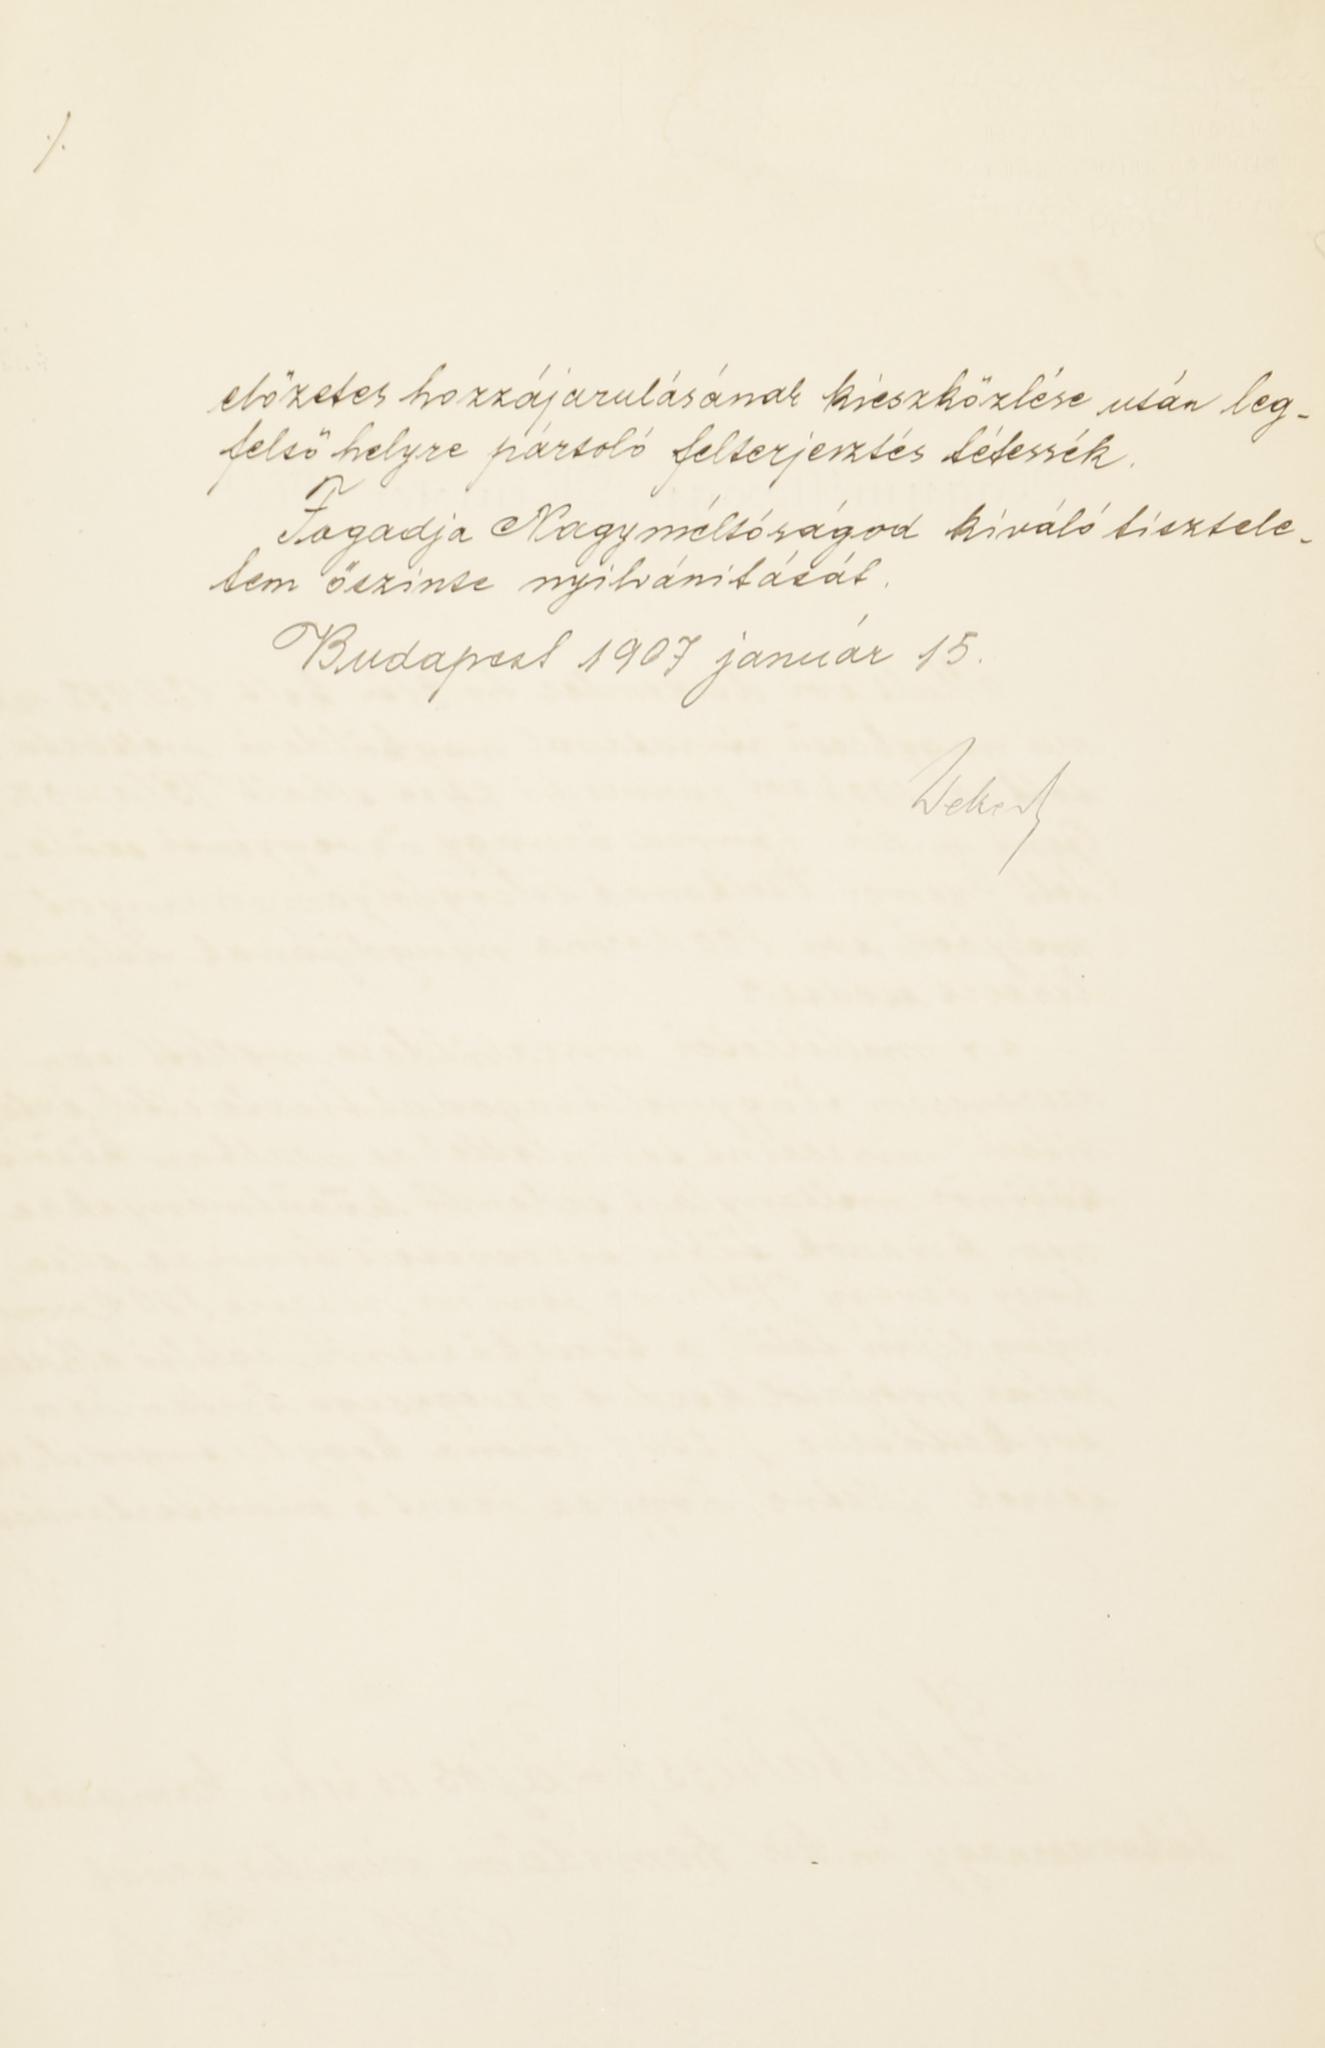 ./.
előzetes hozzájarulásának kieszközlése után leg-
felső helyre pártoló felterjesztés tétessék.
Fogadja Nagyméltóságod kiváló tisztele-
tem őszinte nyilvánitását.
Budapest 1907 január 15.
Wekerle